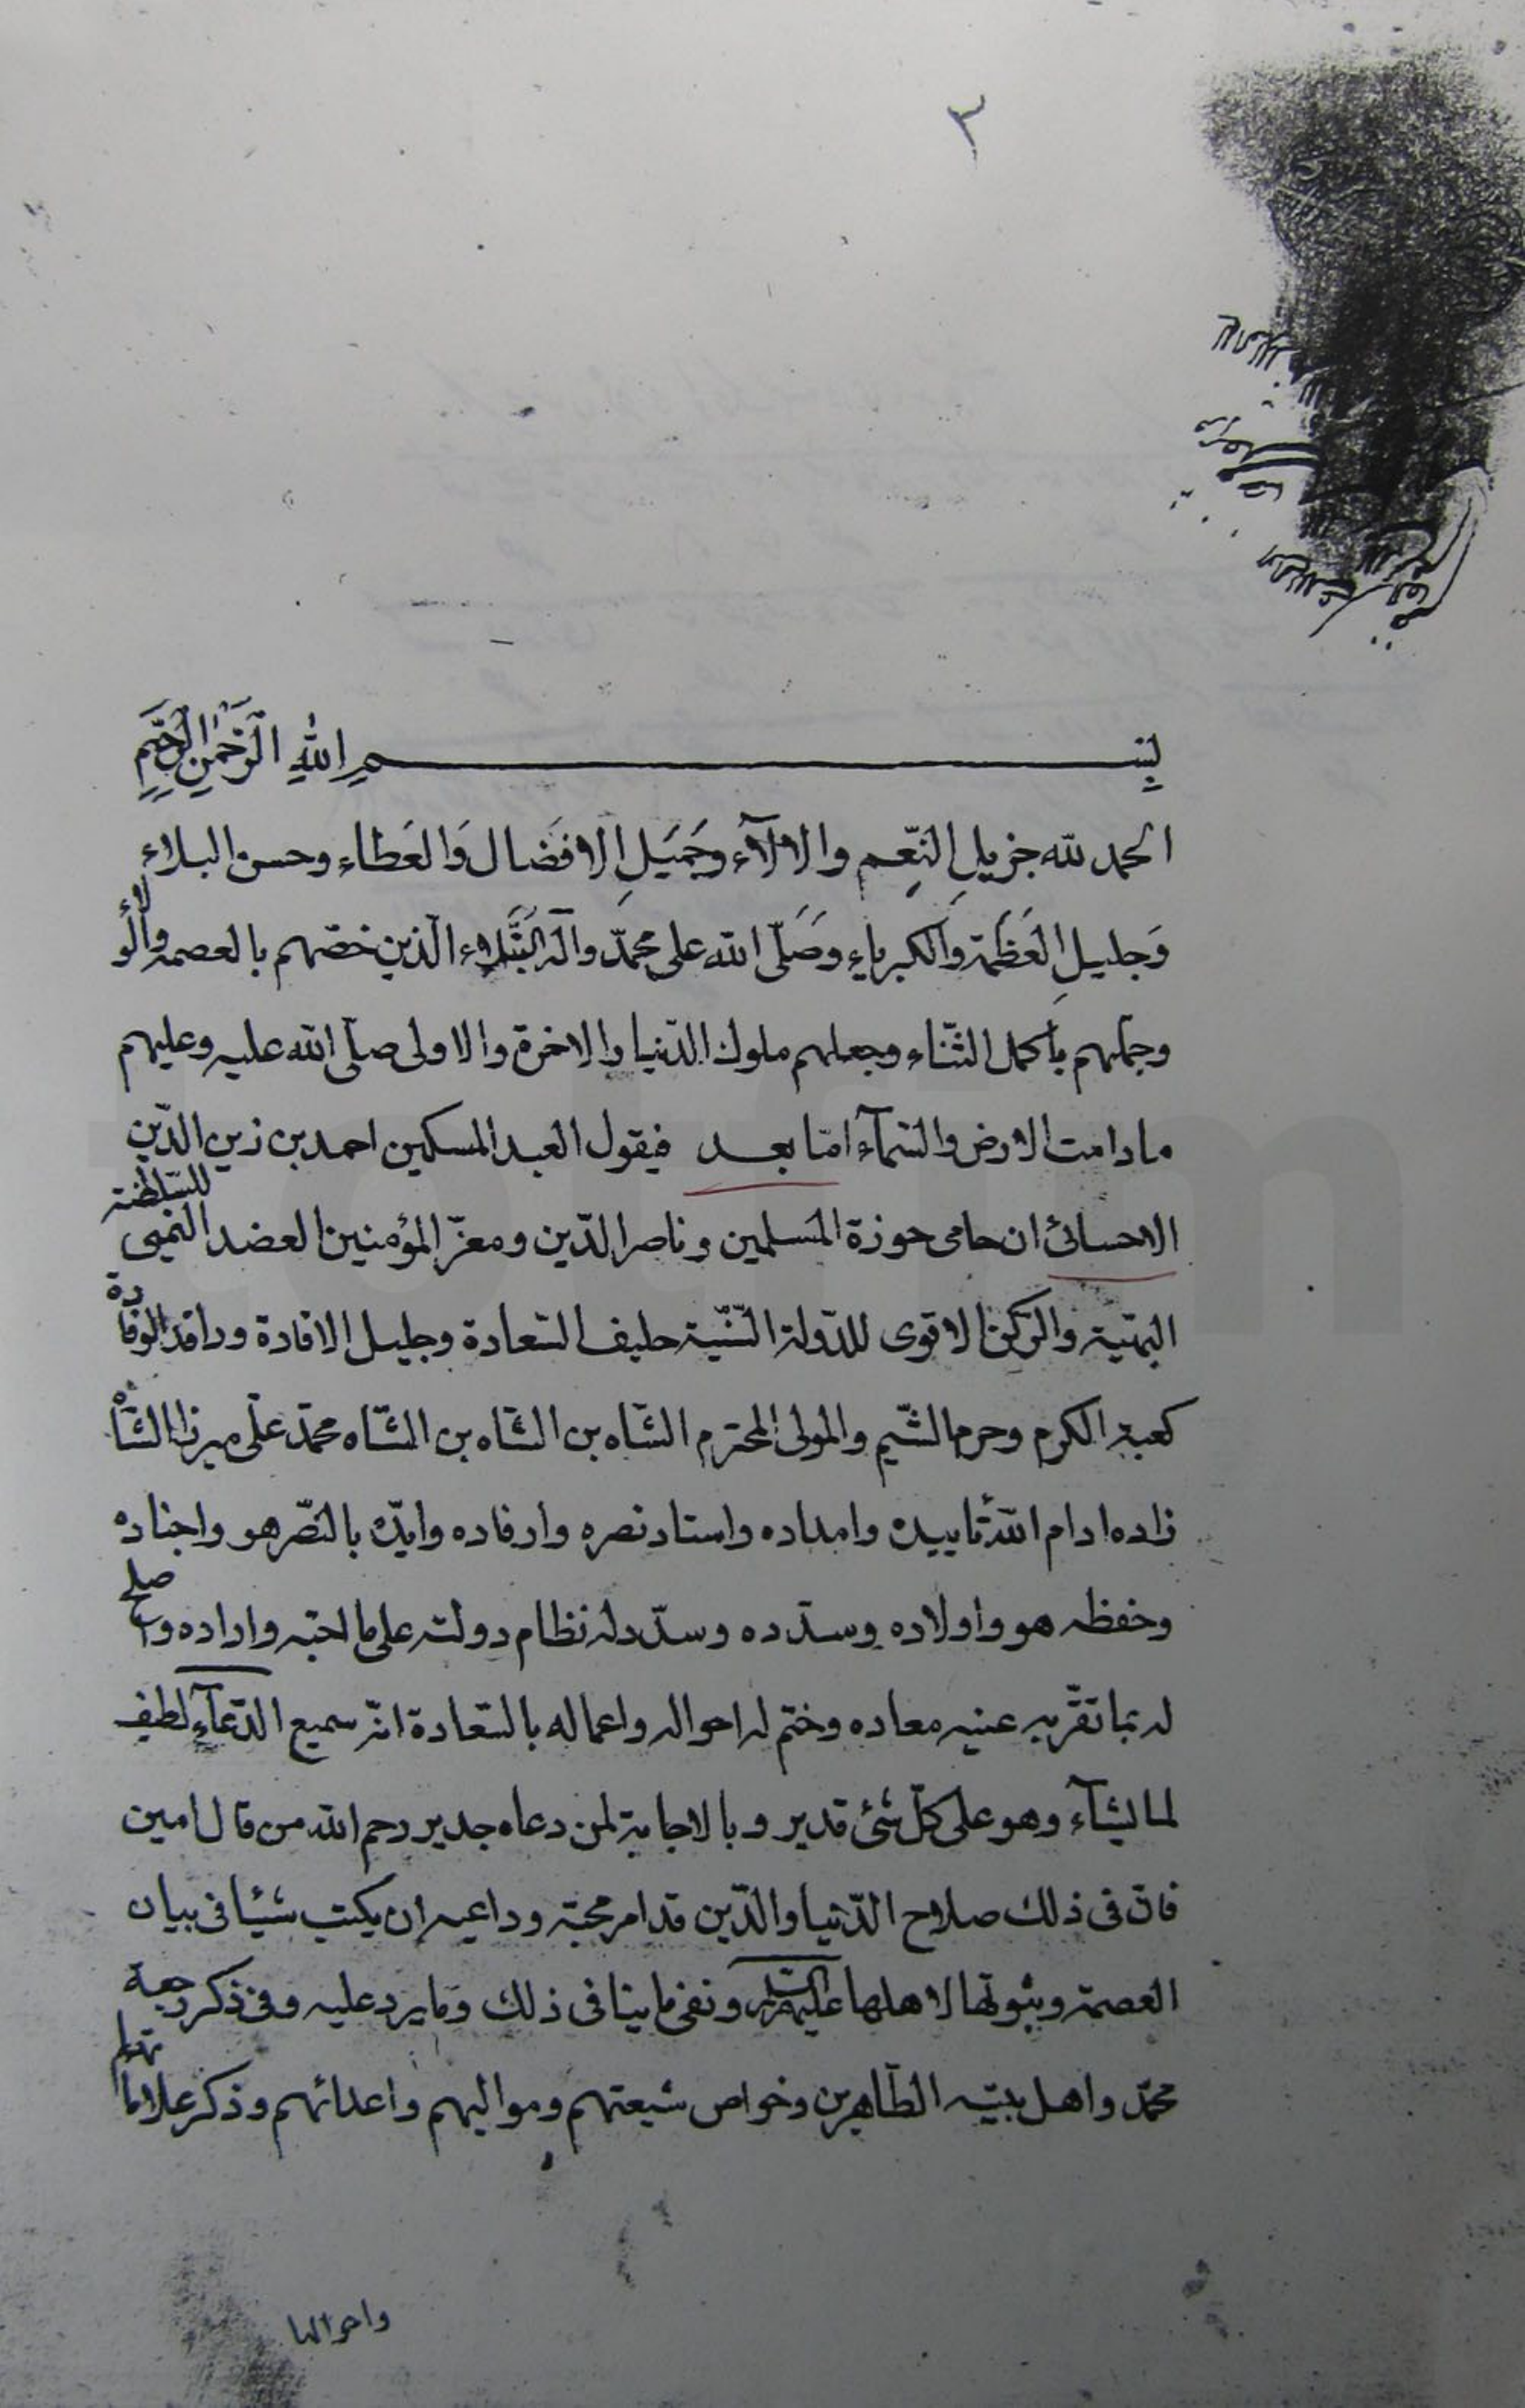 ٢
بِسْمِ اللهِ الرَّحْمنِ الرَّحِيمِ
الحمد للّه جزيلِ النِّعَم والالآء وجَميَلِ الافضَال وَالعَطاء وحسن البلاء
وَجليلِ العَظَمة والكبرياءِ وصَلّى اللّه على محمّد وآله النُّبَلاء الّذين خصّهم بالعصمة والولاء
وجمّلهم بأكمل الثّناء وجعلهم ملوك الدّنيا والاخرة والاولى صلّى اللّه عليه وعليهم
مادامت الارض والسّمآء امّا بعد فيقول العبد المسكين احمد بن زين الدّين
الاحسائى ان حامى حوزة المسلمين وناصر الدّين ومعزّ المؤمنين العضد اليمنى للسّلطنة
البهيّة والرّكن الاقوى للدّولة السّنيّة حليف السّعادة وجليل الافادة ورافد الوفادة
كعبة الكرم وحرم الشّيم والمولى المحترم الشّاه بن الشّاه بن الشّاه محمّد على ميرزا الشّاه
زاده ادام اللّه تأييده وامداده واسناد نصره وارفاده وايّده بالنّصر هو واجناده
وحفظه هو واولاده وسدّده وسدّد له نظام دولته على ما احبّه واراده واصلح
له بما تقرّ به عينيه معاده وختم له احواله واعماله بالسّعادة انّه سميع الدّعآء لطيف
لما يشآء وهو على كلّ شئ قدير وبالاجابة لمن دعاه جدير رحم اللّه من قال امين
فانّ فى ذلك صلاح الدّنيا والدّين قد امر محبّه وداعيه ان يكتب شيئا فى بيان
العصمة وثبوتها لاهلها عليهم السّلام ونفى ما ينافى ذلك وما يرد عليه وفى ذكر رجعة
محمّد واهل بيته الطّاهرين وخواص شيعتهم ومواليهم واعدائهم وذكر علاماتها
واحوالها